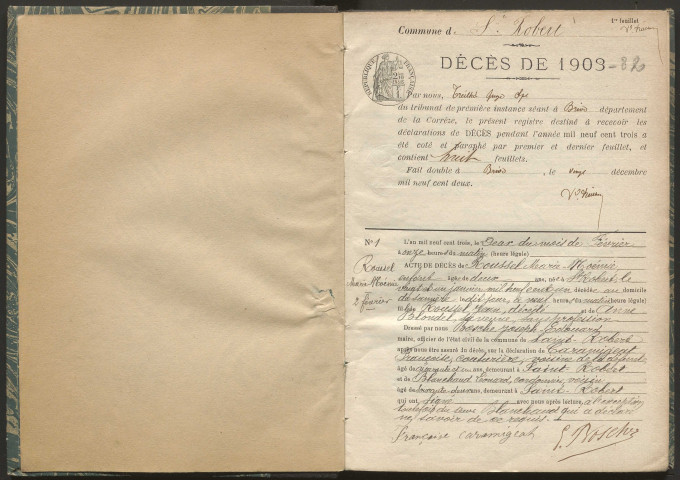 Commune de St Robert
1er feuillet
DÉCÈS DE 1903
RÉPUBLIQUE FRANÇAISE
Par nous,
du tribunal de première instance séant à Brive département
de la Corrèze, le présent registre destiné à recevoir les
déclarations de DÉCÈS pendant l'année mil neuf cent trois a
été coté et paraphé par premier et dernier feuillet, et
contient huit feuillets.
Fait double à Brive, le vingt décembre
mil neuf cent deux.
No 1
L'an mil neuf cent trois, le deux du mois de Février
à onze heures du matin (heure légale)
Roussel
Marie Noémie
2 février
ACTE DE DÉCÈS de Roussel Marie Noémie
enfant, âgé de deux né à St Robert le
vingt et un janvier mil neuf cent un décédé au domicile
de sa mère heures du matin (heure légale)
fille de Roussel Jean, décédé et de Anne
Blondel, sa veuve, sans profession
Dressé par nous Bosche Joseph Edouard
maire, officier de l'état civil de la commune de Saint Robert
après nous être assuré du décès, sur la déclaration de Caramigeat
Françoise, couturière, voisine
âgé de ans, demeurant à Saint Robert
et de Blanchaud Léonard, cordonnier, voisin
âgé de ans, demeurant à Saint Robert
qui ont signé avec nous après lecture, à l'exception
toutefois du sieur Blanchaud qui a déclaré
ne savoir de ce requis.
Françoise Caramigeat
E. Bosche